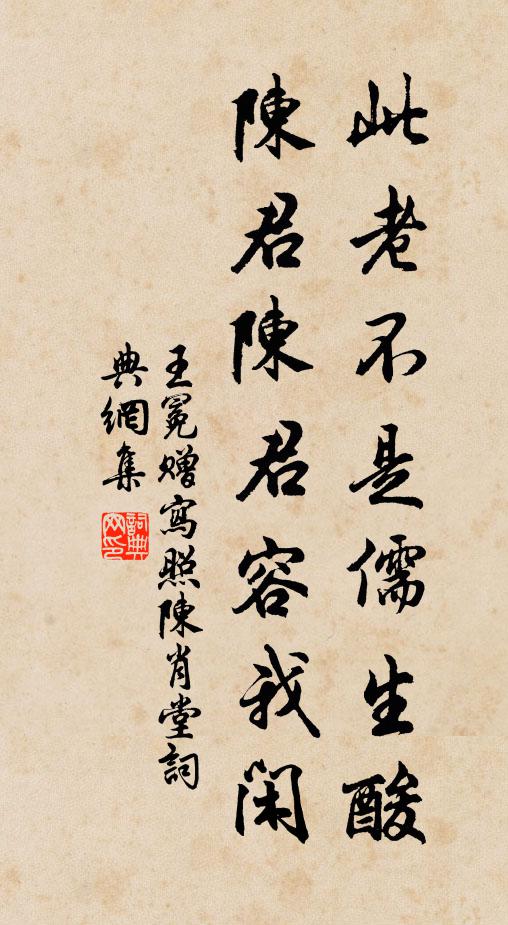 此老不是儒生酸
陳君陳君容我閑
王冕贈寫照陳肖堂詞
典網集
詞典網印